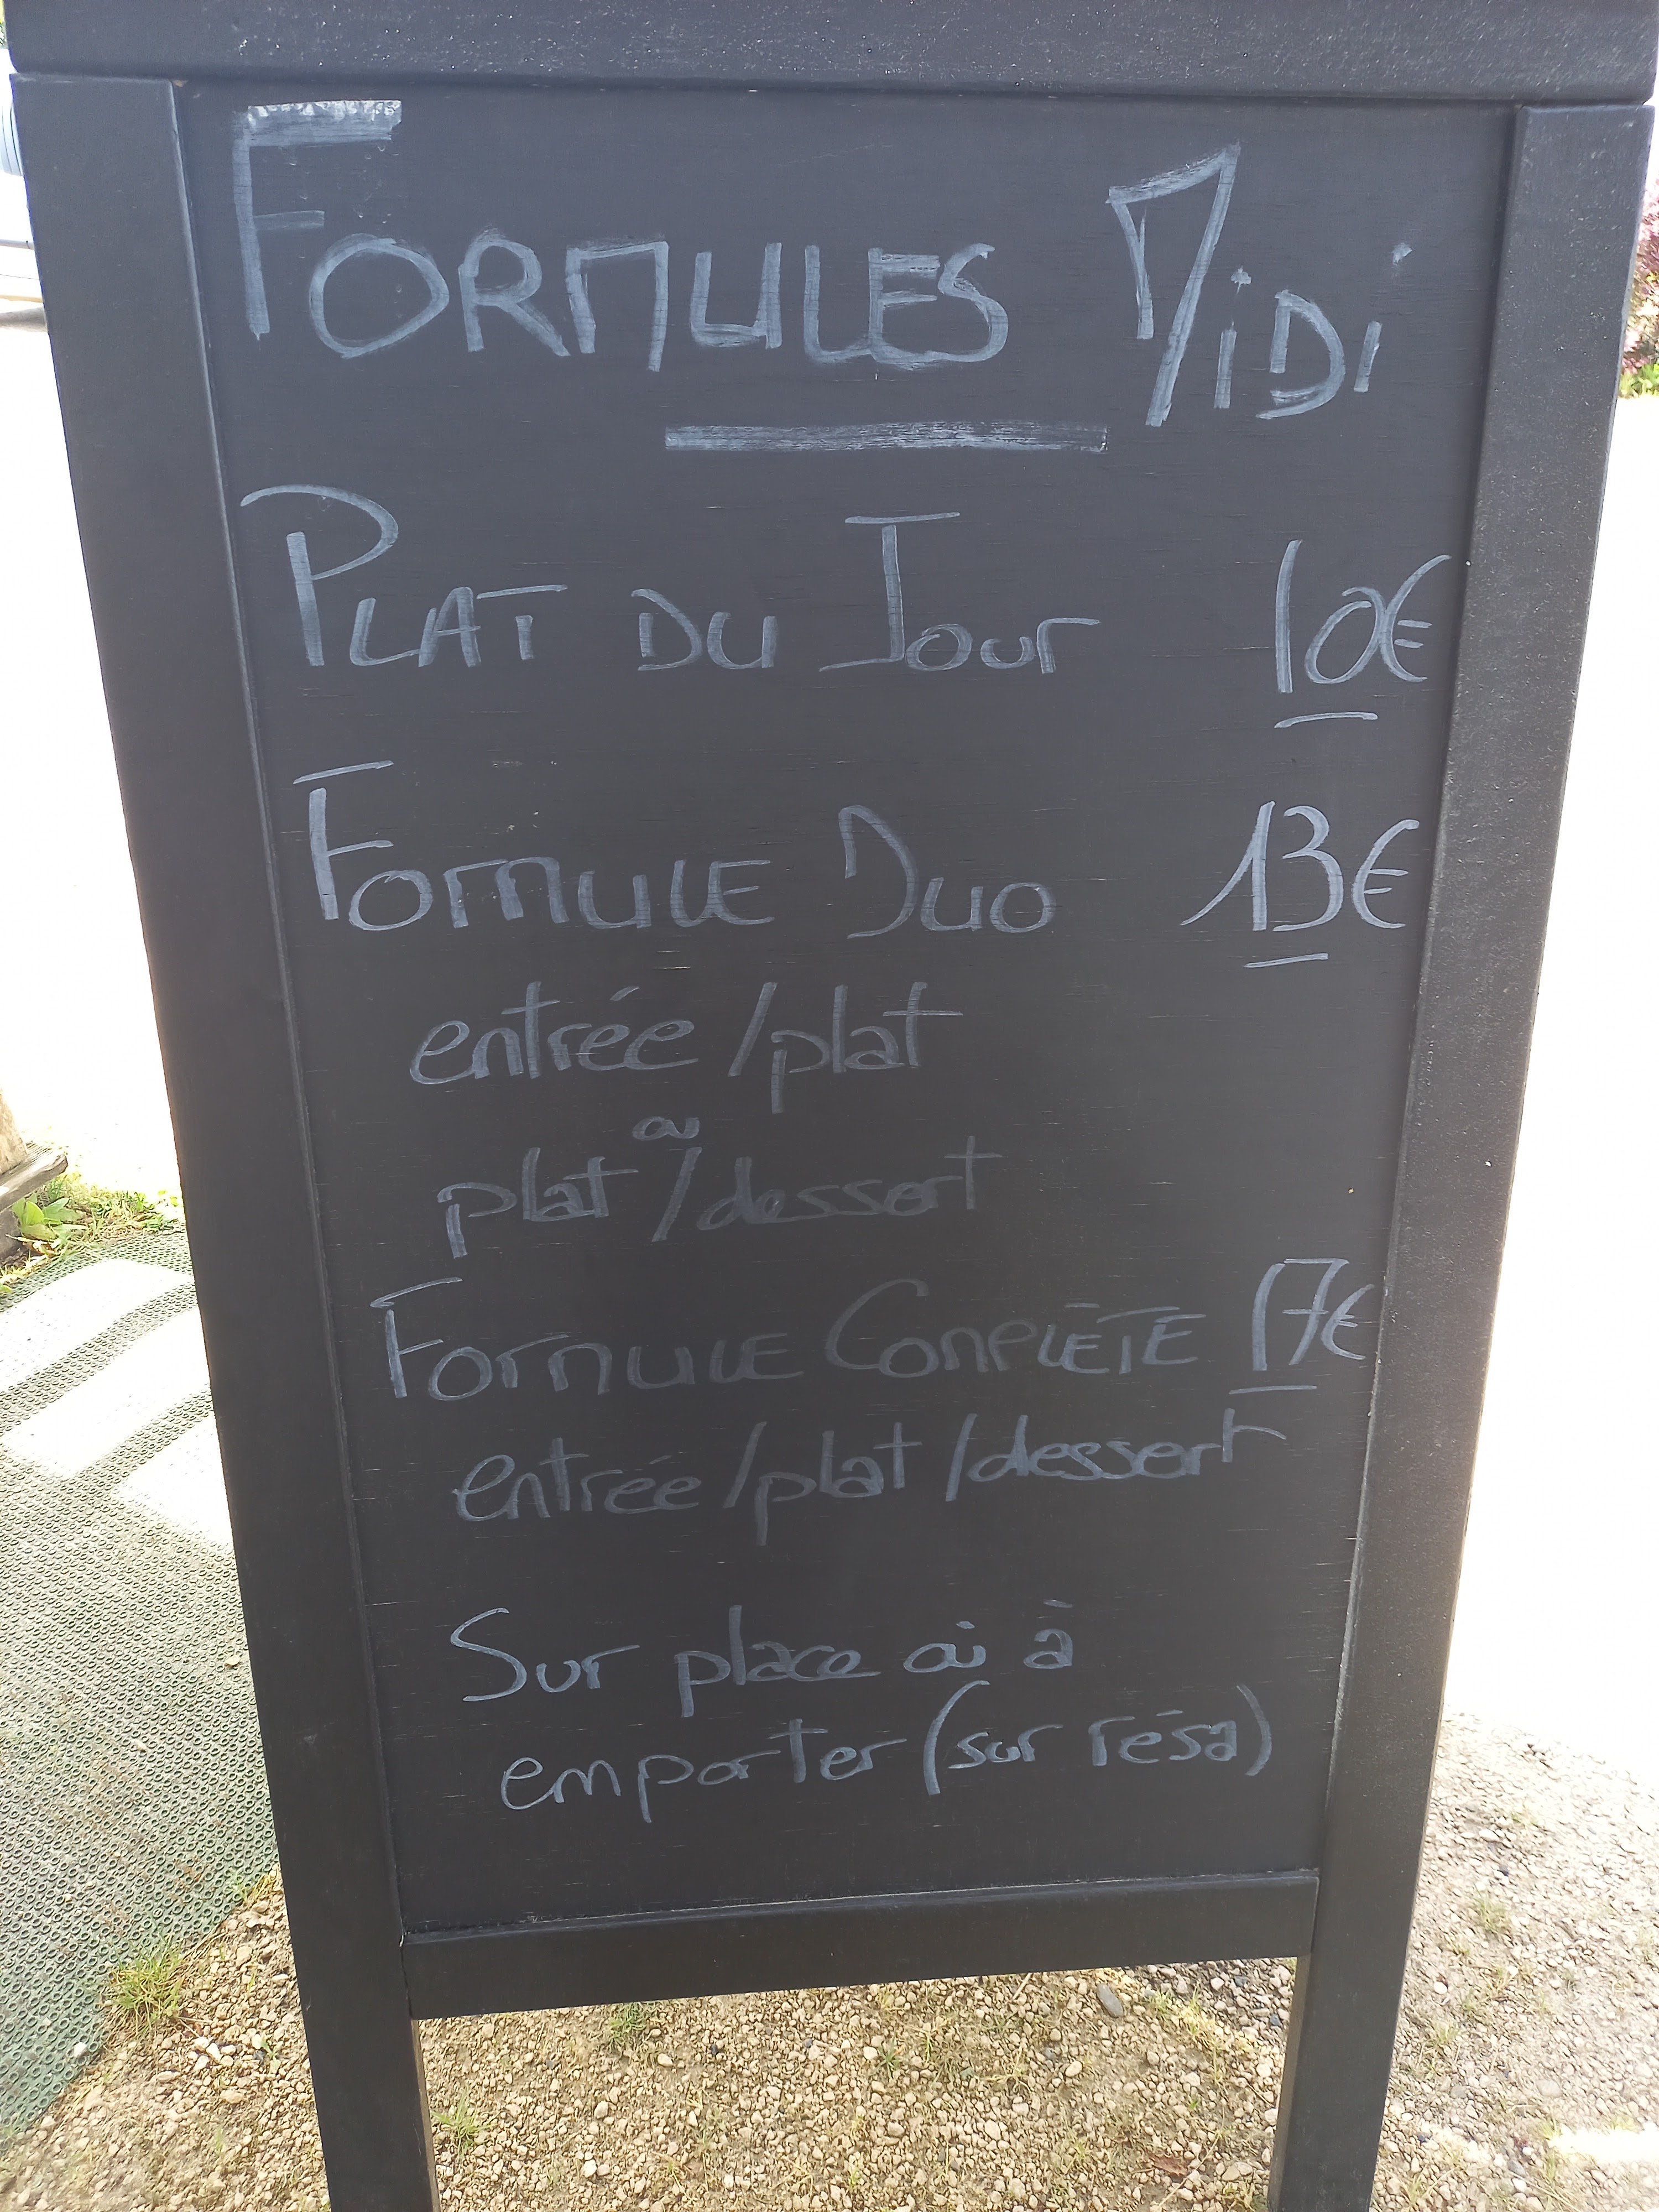 FORMULES MIDI
PLAT DU JOUR 10€
FORMULE DUO 13€
entrée/plat
ou
plat/dessert
FORMULE COMPLÈTE 17€
entrée/plat/dessert
Sur place ou à
emporter (sur résa)